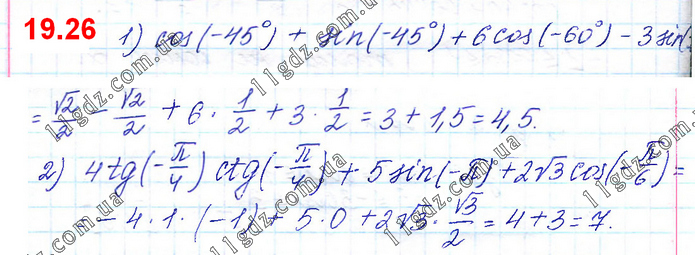 19.26
1) cos(-45°) + sin(-45°) + 6cos(-60°) - 3sin(
= √2/2 - √2/2 + 6 · 1/2 + 3 · 1/2 = 3 + 1,5 = 4,5.
2) 4tg(-π/4) ctg(-π/4) + 5sin(-π) + 2√3 cos(-π/6) =
= -4 · 1 · (-1) - 5 · 0 + 2√3 · √3/2 = 4 + 3 = 7.
11gdz.com.ua